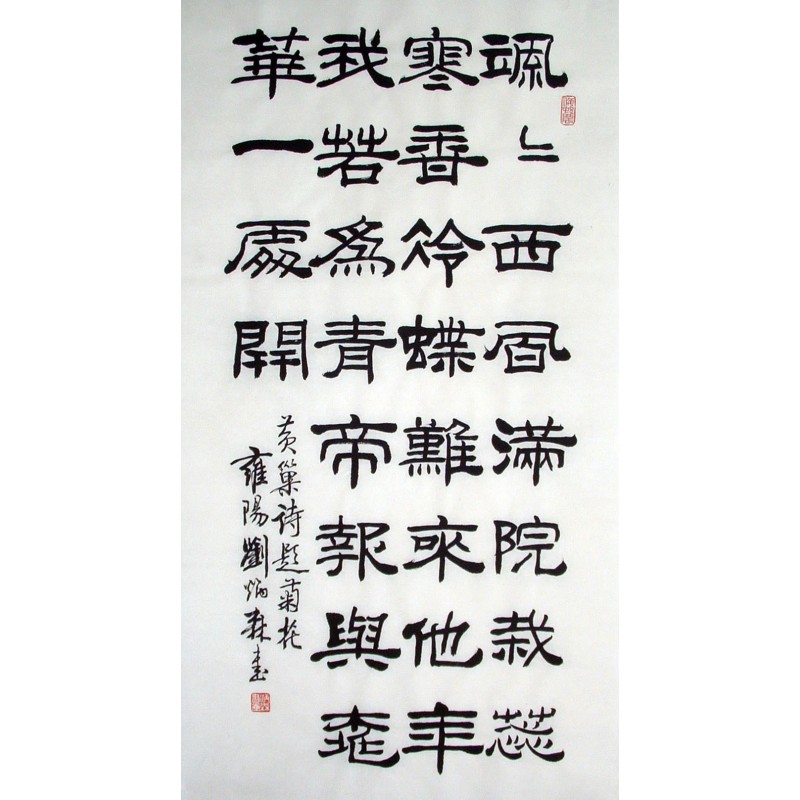 颯〻西風滿院栽蕊
寒香冷蝶難來他年
我若為青帝報與桃
華一處開
黄巢诗题菊花
雍陽劉炳森書